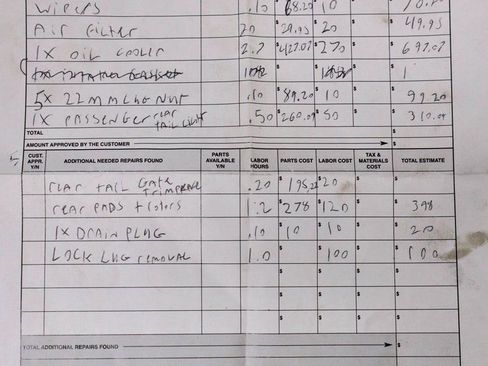 WIPERS .10 $68.20 10 $
AIR FILTER 20 $29.95 $20 $49.95
1X OIL COOLER 2.7 $427.07 $270 $697.07
5X 22MM LUG NUT .10 $89.20 $10 $99.20
1X PASSENGER rear TAIL LIGHT .50 $260.09 $50 $310.09
TOTAL $
AMOUNT APPROVED BY THE CUSTOMER $
CUST. APPR. Y/N ADDITIONAL NEEDED REPAIRS FOUND PARTS AVAILABLE Y/N LABOR HOURS PARTS COST LABOR COST TAX & MATERIALS COST TOTAL ESTIMATE
rear TAIL GATE .20 $ $20 $ $
rear PADS + rotors 1.2 $278 $120 $ $398
1X DRAIN PLUG .10 $10 $10 $ $20
LOCK LUG removal 1.0 $ $100 $ $100
$ $ $ $
$ $ $ $
TOTAL ADDITIONAL REPAIRS FOUND $